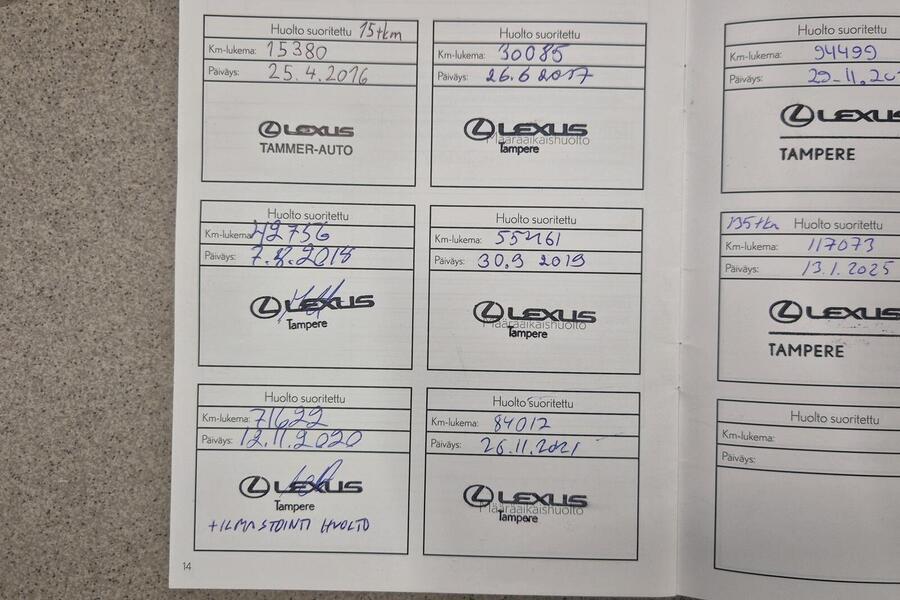 Huolto suoritettu 15tkm
Km-lukema: 15380
Päiväys: 25.4.2016
LEXUS
TAMMER-AUTO
Huolto suoritettu
Km-lukema: 30085
Päiväys: 26.6 2017
LEXUS
Määräaikaishuolto
Tampere
Huolto suoritettu
Km-lukema: 42756
Päiväys: 7.8.2018
LEXUS
Tampere
Huolto suoritettu
Km-lukema:
Päiväys: 30.9 2019
LEXUS
Määräaikaishuolto
Tampere
Huolto suoritettu
Km-lukema: 71622
Päiväys: 12.11.2020
LEXUS
Tampere
+ILMASTOINTI HUOLTO
Huolto suoritettu
Km-lukema: 84012
Päiväys: 26.11.2021
LEXUS
Määräaikaishuolto
Tampere
14
Huolto suoritettu
Km-lukema: 94499
Päiväys:
LEXUS
TAMPERE
Huolto suoritettu
Km-lukema: 117073
Päiväys: 13.1.2025
LEXUS
TAMPERE
Huolto suoritettu
Km-lukema:
Päiväys: